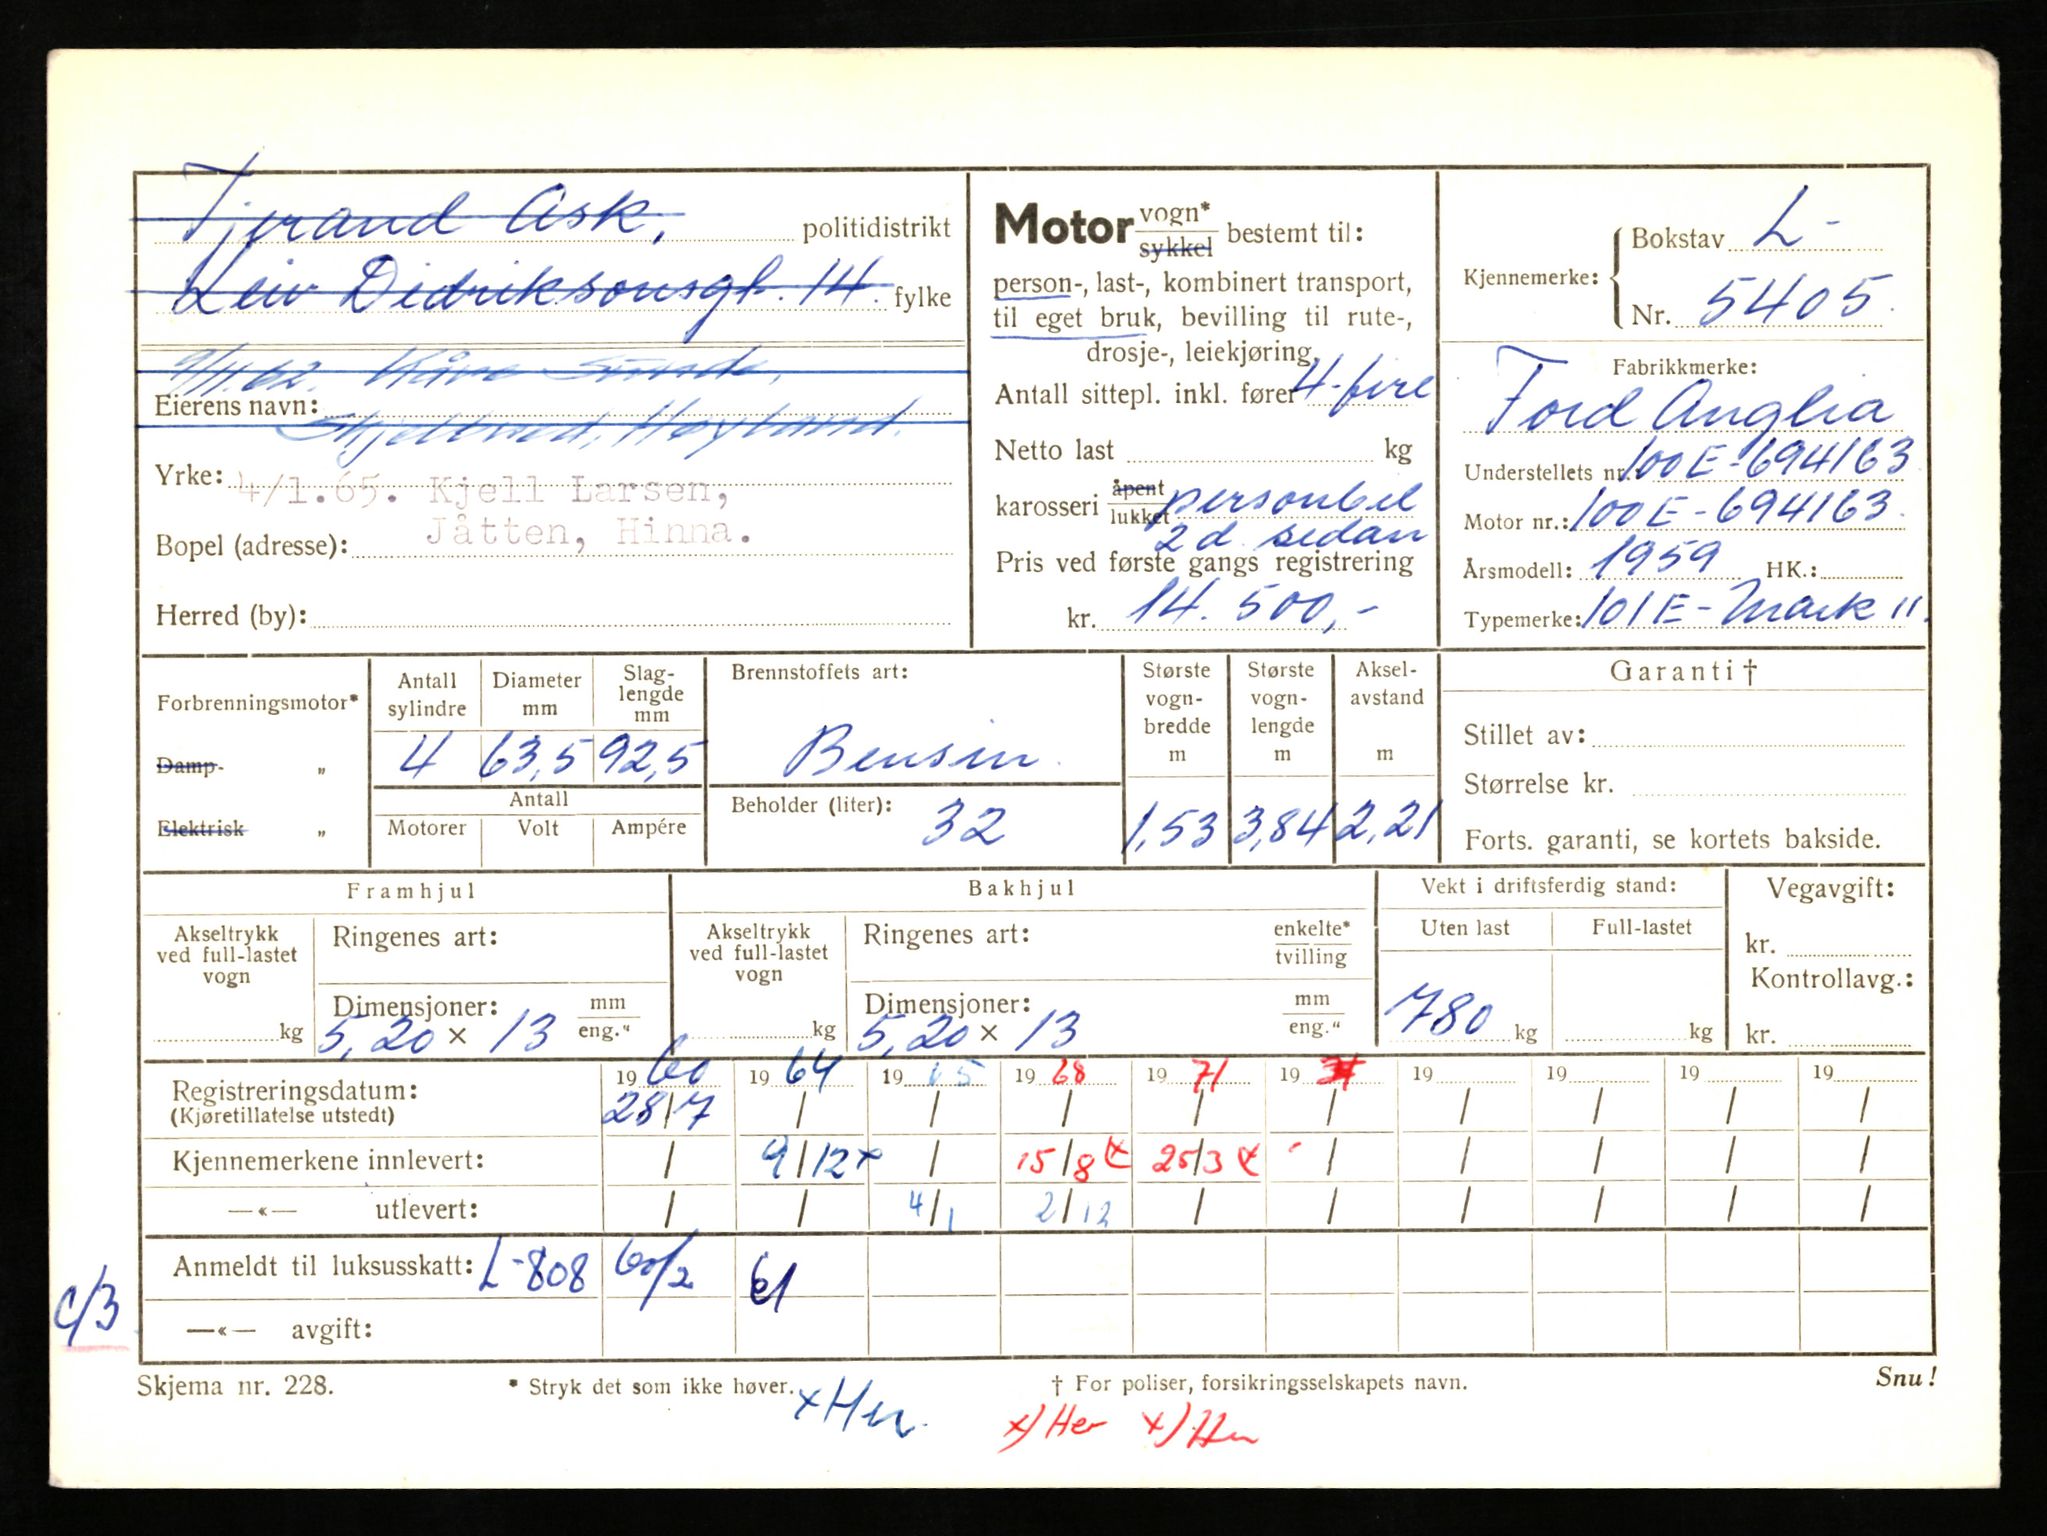 Tjerand Ask, politidistrikt
Leiv Didriksonsgt. 14. fylke
9/11.62. Kåre Sunde,
Eierens navn:
Skjelbred, Høyland.
Yrke: 4/1.65. Kjell Larsen,
Jåtten, Hinna.
Bopel (adresse):
Herred (by):
Motor vogn* sykkel bestemt til:
person-, last-, kombinert transport,
til eget bruk, bevilling til rute-,
drosje-, leiekjøring,
Antall sittepl. inkl. fører 4-fire
Netto last kg
karosseri åpent lukket personbil
2 d. sedan
Pris ved første gangs registrering
kr. 14.500,-
Kjennemerke: Bokstav L-
Nr. 5405
Fabrikkmerke:
Ford Anglia
Understellets nr. 100E-694163
Motor nr.: 100E-694163
Årsmodell: 1959 HK.:
Typemerke: 101E-Mark II.
Forbrenningsmotor*
Damp- „
Elektrisk „
Antall sylindre Diameter mm Slag-lengde mm
4 63,5 92,5
Antall
Motorer Volt Ampére
Brennstoffets art:
Bensin
Beholder (liter): 32
Største vogn-bredde m 1,53
Største vogn-lengde m 3,84
Aksel-avstand m 2,21
Garanti †
Stillet av:
Størrelse kr.
Forts. garanti, se kortets bakside.
Framhjul
Akseltrykk ved full-lastet vogn kg
Ringenes art:
Dimensjoner: mm eng.“
5,20 × 13
Bakhjul
Akseltrykk ved full-lastet vogn kg
Ringenes art: enkelte* tvilling
Dimensjoner: mm eng.“
5,20 × 13
Vekt i driftsferdig stand:
Uten last Full-lastet
780 kg kg
Vegavgift:
kr.
Kontrollavg.:
kr.
Registreringsdatum: 19 60 19 64 19 65 19 68 19 71 19 19 19 19 19
(Kjøretillatelse utstedt) 28/7 / / / / / / / / /
Kjennemerkene innlevert: / 9/12 x / 15/8 x 25/3 x / / / / /
—«— utlevert: / / 4/1 2/12 / / / / / /
Anmeldt til luksusskatt: L-808 60/2 61
—«— avgift:
C/3
Skjema nr. 228. * Stryk det som ikke høver. † For poliser, forsikringsselskapets navn. Snu!
x Her. x) Her x) Her